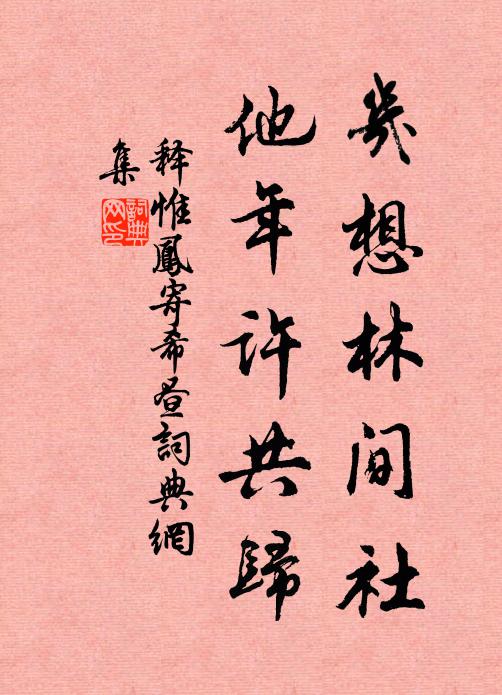 幾想林間社
他年許共歸
釋惟鳳寄希晝詞典網
集
詞典网印